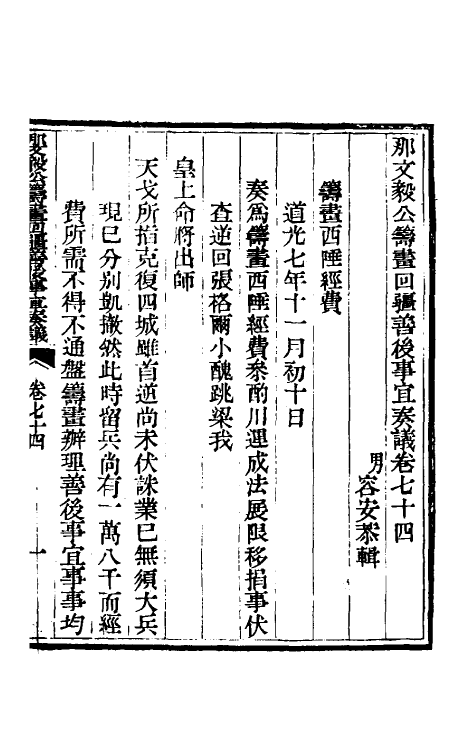 那文毅公籌畫回疆善後事宜奏議卷七十四
男容安恭輯
籌畫西陲經費
道光七年十一月初十日
奏爲籌畫西陲經費叅酌川運成法展限移捐事伏
查逆回張格爾小醜跳梁我
皇上命將出師
天戈所指克復四城雖首逆尚未伏誅業已無須大兵
現已分別凱撤然此時留兵尚有一萬八千而經
費所需不得不通盤籌畫辦理善後事宜事事均
那文毅公籌畫回疆善後事宜奏議
卷七十四
一